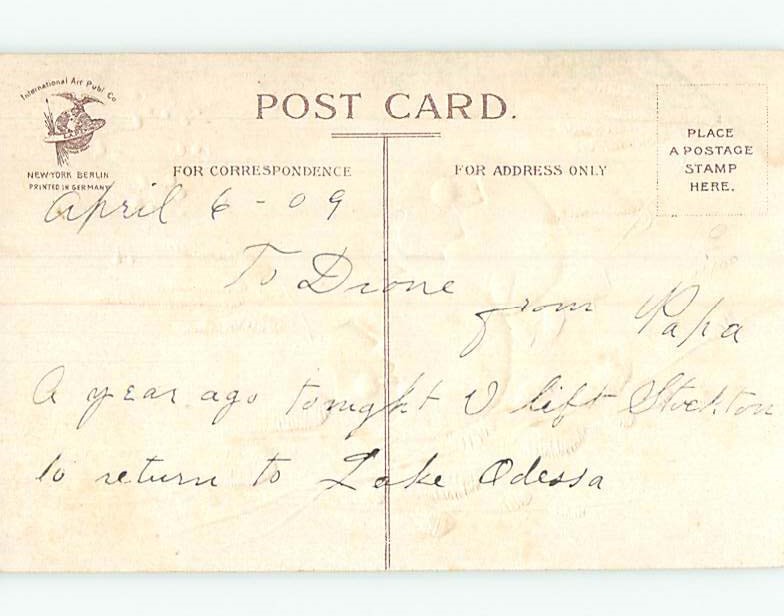 International Art Publ. Co
NEW-YORK BERLIN
PRINTED IN GERMANY
POST CARD.
FOR CORRESPONDENCE
FOR ADDRESS ONLY
PLACE
A POSTAGE
STAMP
HERE.
April 6 - 09
To Dione
from Papa
A year ago tonight I left Stockton
to return to Lake Odessa